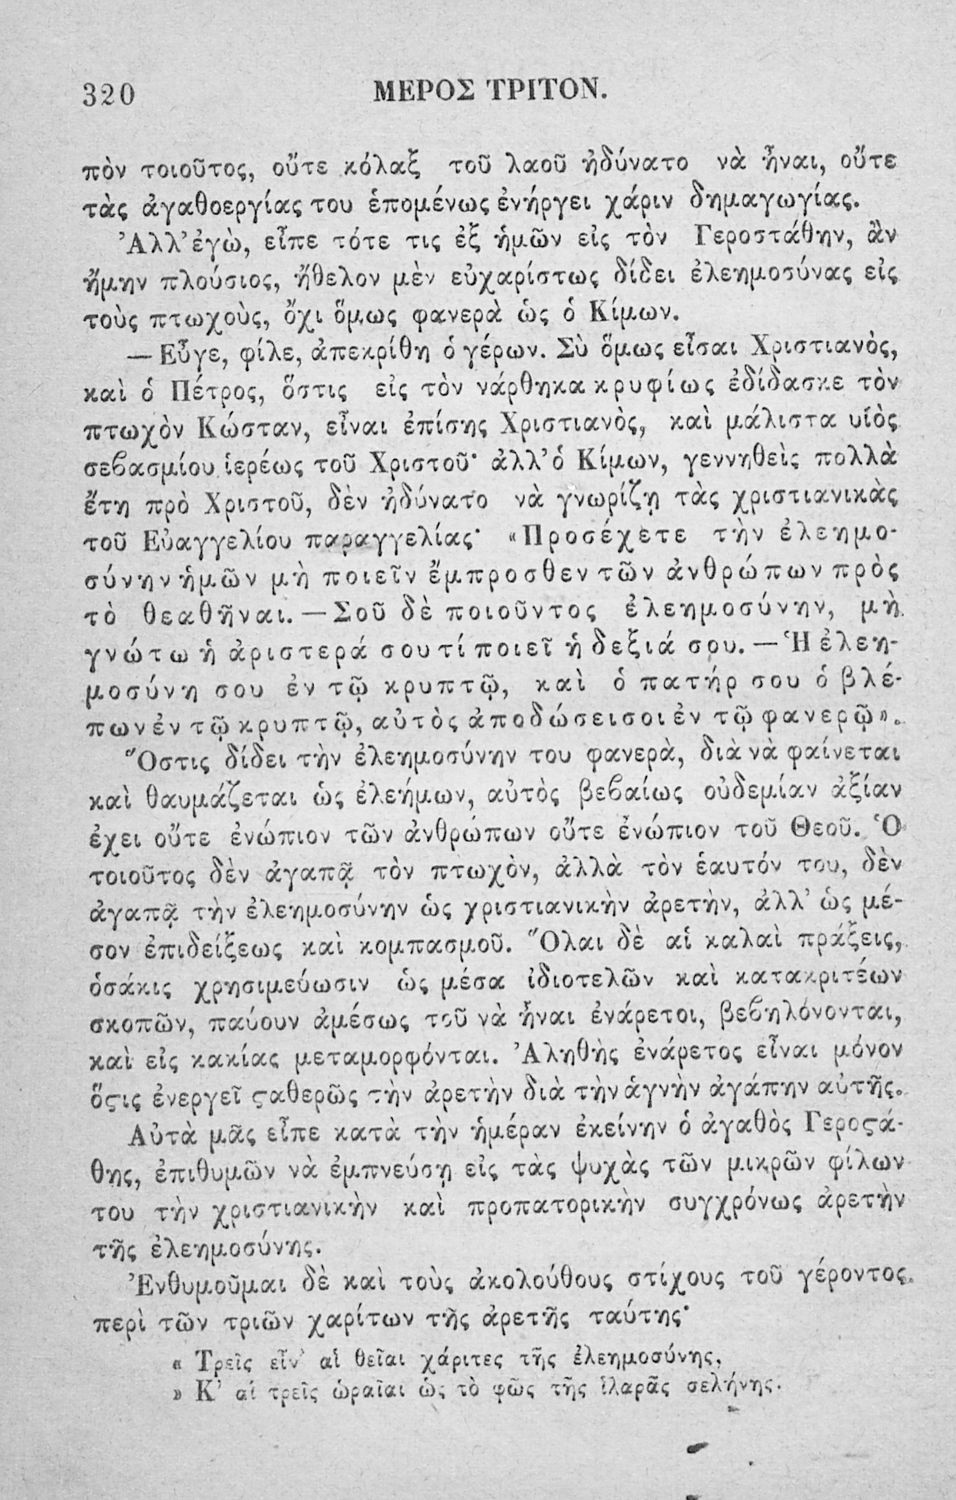 320
ΜΕΡΟΣ ΤΡΙΤΟΝ.
πὸν τοιοῦτος, οὔτε κόλαξ τοῦ λαοῦ ἠδύνατο νὰ ἦναι, οὔτε
τὰς ἀγαθοεργίας του ἑπομένως ἐνήργει χάριν δημαγωγίας.
Ἀλλ' ἐγὼ, εἶπε τότε τις ἐξ ἡμῶν εἰς τὸν Γεροστάθην, ἂν
ἤμην πλούσιος, ἤθελον μὲν εὐχαρίστως δίδει ἐλεημοσύνας εἰς
τοὺς πτωχοὺς, ὄχι ὅμως φανερὰ ὡς ὁ Κίμων.
— Εὖγε, φίλε, ἀπεκρίθη ὁ γέρων. Σὺ ὅμως εἶσαι Χριστιανὸς,
καὶ ὁ Πέτρος, ὅστις εἰς τὸν νάρθηκα κρυφίως ἐδίδασκε τὸν
πτωχὸν Κώσταν, εἶναι ἐπίσης Χριστιανὸς, καὶ μάλιστα υἱὸς
σεβασμίου ἱερέως τοῦ Χριστοῦ· ἀλλ' ὁ Κίμων, γεννηθεὶς πολλὰ
ἔτη πρὸ Χριστοῦ, δὲν ἠδύνατο νὰ γνωρίζῃ τὰς χριστιανικὰς
τοῦ Εὐαγγελίου παραγγελίας· «Προσέχετε τὴν ἐλεημο-
σύνην ἡμῶν μὴ ποιεῖν ἔμπροσθεν τῶν ἀνθρώπων πρὸς
τὸ θεαθῆναι. — Σοῦ δὲ ποιοῦντος ἐλεημοσύνην, μὴ
γνώτω ἡ ἀριστερά σου τί ποιεῖ ἡ δεξιά σου. — Ἡ ἐλεη-
μοσύνη σου ἐν τῷ κρυπτῷ, καὶ ὁ πατήρ σου ὁ βλέ-
πων ἐν τῷ κρυπτῷ, αὐτὸς ἀποδώσει σοι ἐν τῷ φανερῷ».
Ὅστις δίδει τὴν ἐλεημοσύνην του φανερὰ, διὰ νὰ φαίνεται
καὶ θαυμάζεται ὡς ἐλεήμων, αὐτὸς βεβαίως οὐδεμίαν ἀξίαν
ἔχει οὔτε ἐνώπιον τῶν ἀνθρώπων οὔτε ἐνώπιον τοῦ Θεοῦ. Ὁ
τοιοῦτος δὲν ἀγαπᾷ τὸν πτωχὸν, ἀλλὰ τὸν ἑαυτόν του, δὲν
ἀγαπᾷ τὴν ἐλεημοσύνην ὡς χριστιανικὴν ἀρετὴν, ἀλλ' ὡς μέ-
σον ἐπιδείξεως καὶ κομπασμοῦ. Ὅλαι δὲ αἱ καλαὶ πράξεις,
ὁσάκις χρησιμεύωσιν ὡς μέσα ἰδιοτελῶν καὶ κατακριτέων
σκοπῶν, παύουν ἀμέσως τοῦ νὰ ἦναι ἐνάρετοι, βεβηλόνονται,
καὶ εἰς κακίας μεταμορφόνται. Ἀληθὴς ἐνάρετος εἶναι μόνον
ὅςις ἐνεργεῖ ςαθερῶς τὴν ἀρετὴν διὰ τὴν ἁγνὴν ἀγάπην αὐτῆς.
Αὐτὰ μᾶς εἶπε κατὰ τὴν ἡμέραν ἐκείνην ὁ ἀγαθὸς Γεροςά-
θης, ἐπιθυμῶν νὰ ἐμπνεύσῃ εἰς τὰς ψυχὰς τῶν μικρῶν φίλων
του τὴν χριστιανικὴν καὶ προπατορικὴν συγχρόνως ἀρετὴν
τῆς ἐλεημοσύνης.
Ἐνθυμοῦμαι δὲ καὶ τοὺς ἀκολούθους στίχους τοῦ γέροντος
περὶ τῶν τριῶν χαρίτων τῆς ἀρετῆς ταύτης·
« Τρεῖς εἶν' αἱ θεῖαι χάριτες τῆς ἐλεημοσύνης,
» Κ' αἱ τρεῖς ὡραῖαι ὡς τὸ φῶς τῆς ἱλαρᾶς σελήνης.